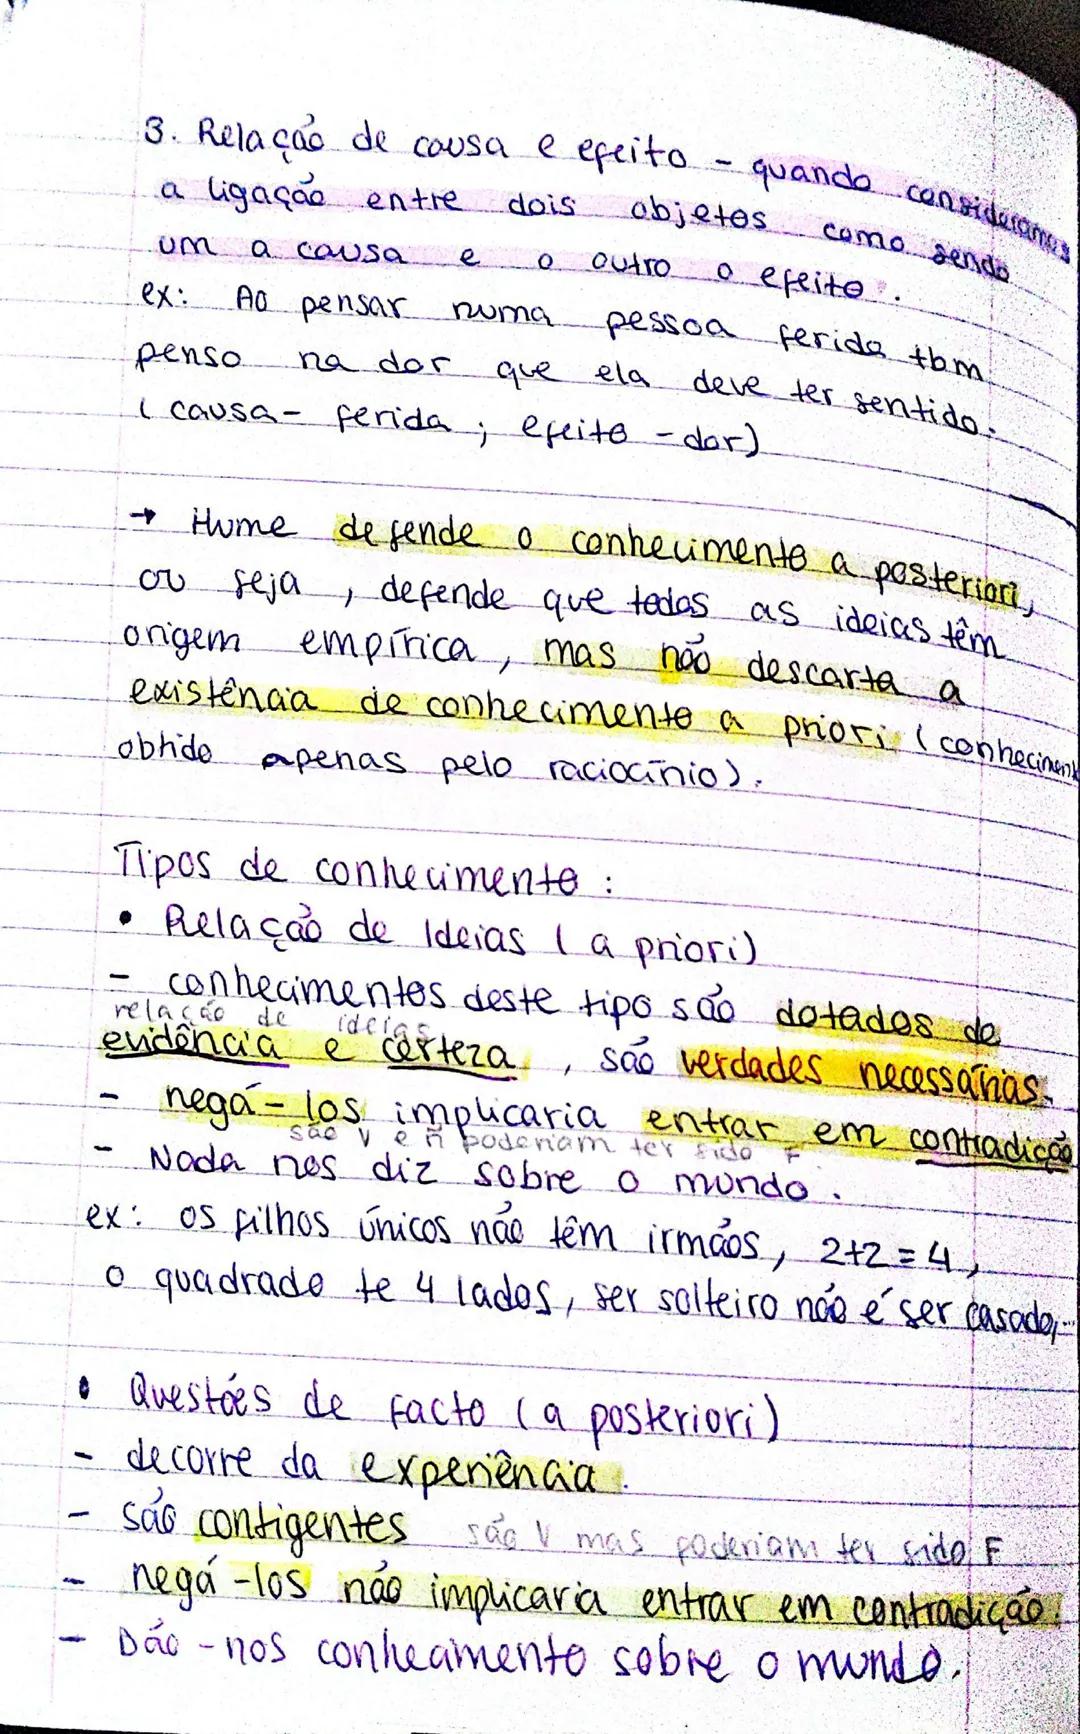 3. Relação de causa e efeito - quando consideramos
a ligação entre dois objetos como sendo
um a causa e o outro o efeito.
ex: Ao pensar numa pessoa ferida tbm
penso na dor que ela deve ter sentido.
(causa- ferida ; efeito - dor)
→ Hume defende o conhecimento a posteriori,
ou seja, defende que todas as ideias têm
origem empírica, mas não descarta a
existência de conhecimento a priori (conheciment
obtido apenas pelo raciocínio).
Tipos de conhecimento :
• Relação de Ideias (a priori)
- conhecimentos deste tipo são dotados de
relação de ideias
evidência e certeza, são verdades necessárias.
- negá-los implicaria entrar em contradição
são V e ñ poderiam ter sido F
- Nada nos diz sobre o mundo.
ex: os filhos únicos não têm irmãos, 2+2=4,
o quadrado te 4 lados, ser solteiro não é ser casado,...
• Questões de facto (a posteriori)
- decorre da experiência.
- são contigentes são V mas poderiam ter sido F
- negá-los não implicaria entrar em contradição.
- Dão-nos conhecimento sobre o mundo.